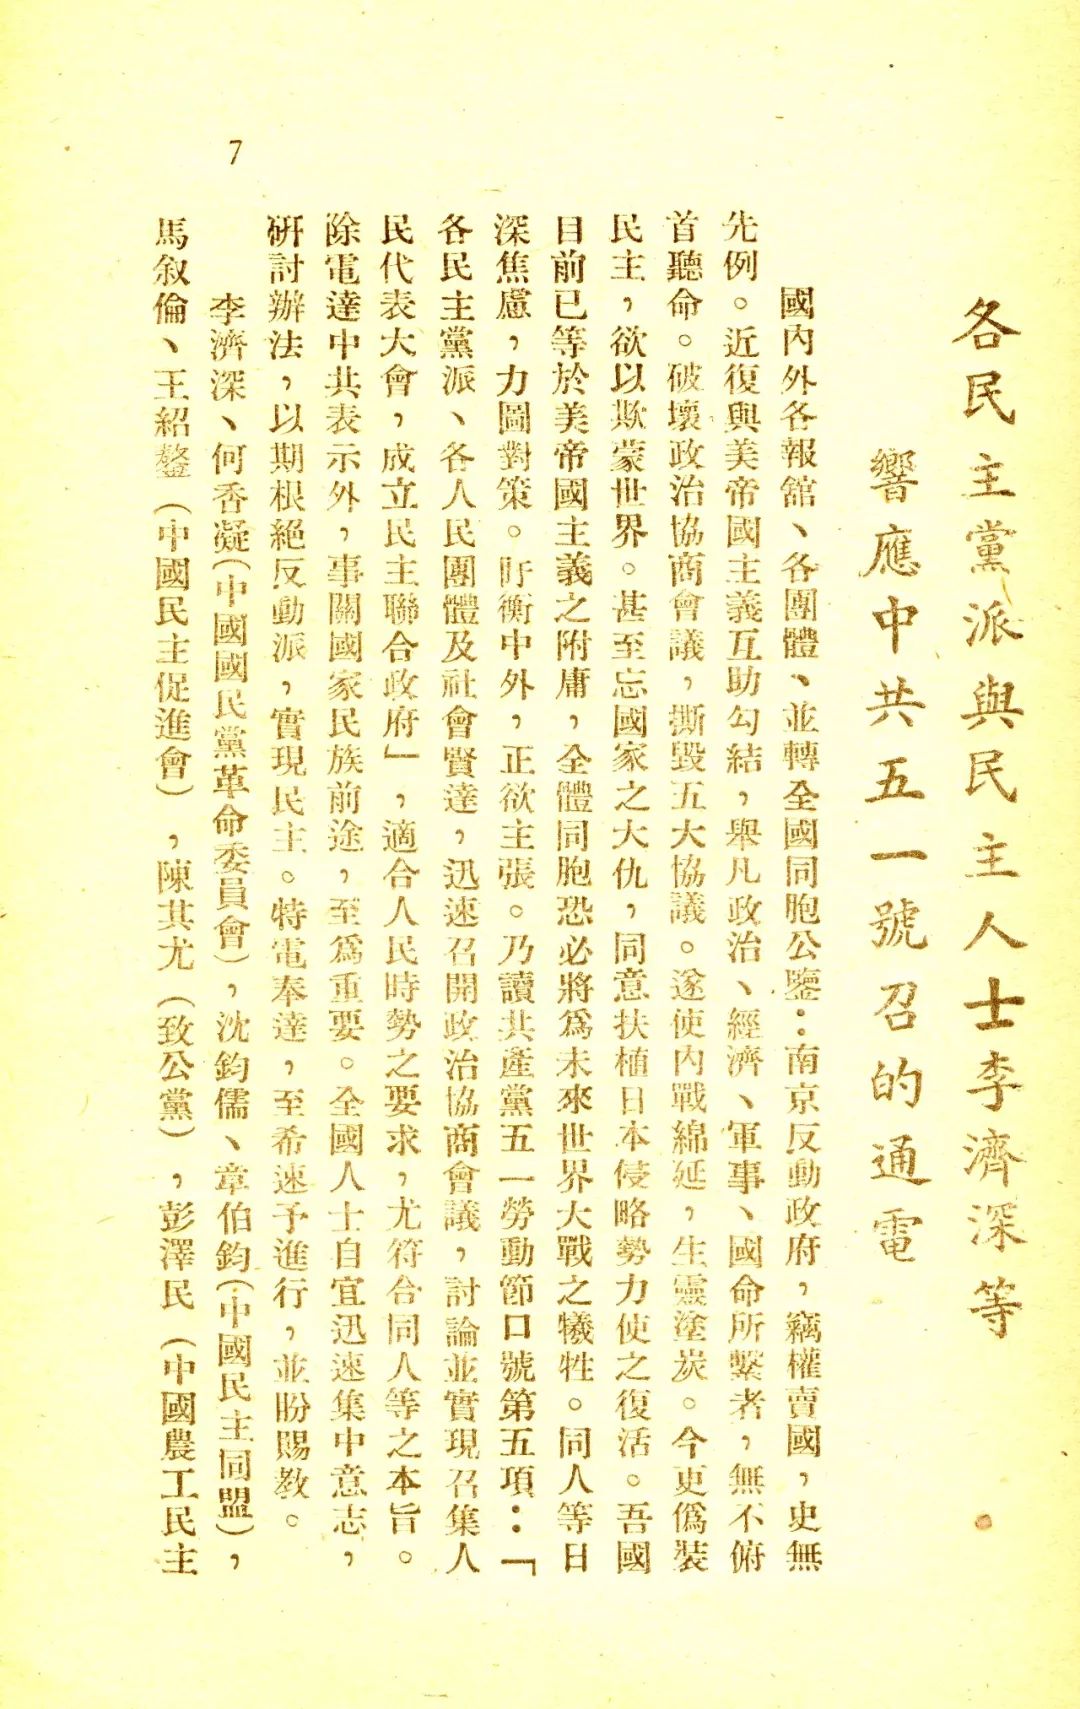 各民主黨派與民主人士李濟深等
響應中共五一號召的通電
國內外各報舘、各團體、並轉全國同胞公鑒：南京反動政府，竊權賣國，史無
先例。近復與美帝國主義互助勾結，舉凡政治、經濟、軍事、國命所繫者，無不俯
首聽命。破壞政治協商會議，撕毀五大協議。遂使內戰綿延，生靈塗炭。今更僞裝
民主，欲以欺蒙世界。甚至忘國家之大仇，同意扶植日本侵略勢力使之復活。吾國
目前已等於美帝國主義之附庸，全體同胞恐必將爲未來世界大戰之犧牲。同人等日
深焦慮，力圖對策。盱衡中外，正欲主張。乃讀共產黨五一勞動節口號第五項：「
各民主黨派、各人民團體及社會賢達，迅速召開政治協商會議，討論並實現召集人
民代表大會，成立民主聯合政府」，適合人民時勢之要求，尤符合同人等之本旨。
除電達中共表示外，事關國家民族前途，至爲重要。全國人士自宜迅速集中意志，
研討辦法，以期根絕反動派，實現民主。特電奉達，至希速予進行，並盼賜教。
李濟深、何香凝（中國國民黨革命委員會），沈鈞儒、章伯鈞（中國民主同盟），
馬叙倫、王紹鏊（中國民主促進會），陳其尤（致公黨），彭澤民（中國農工民主
7